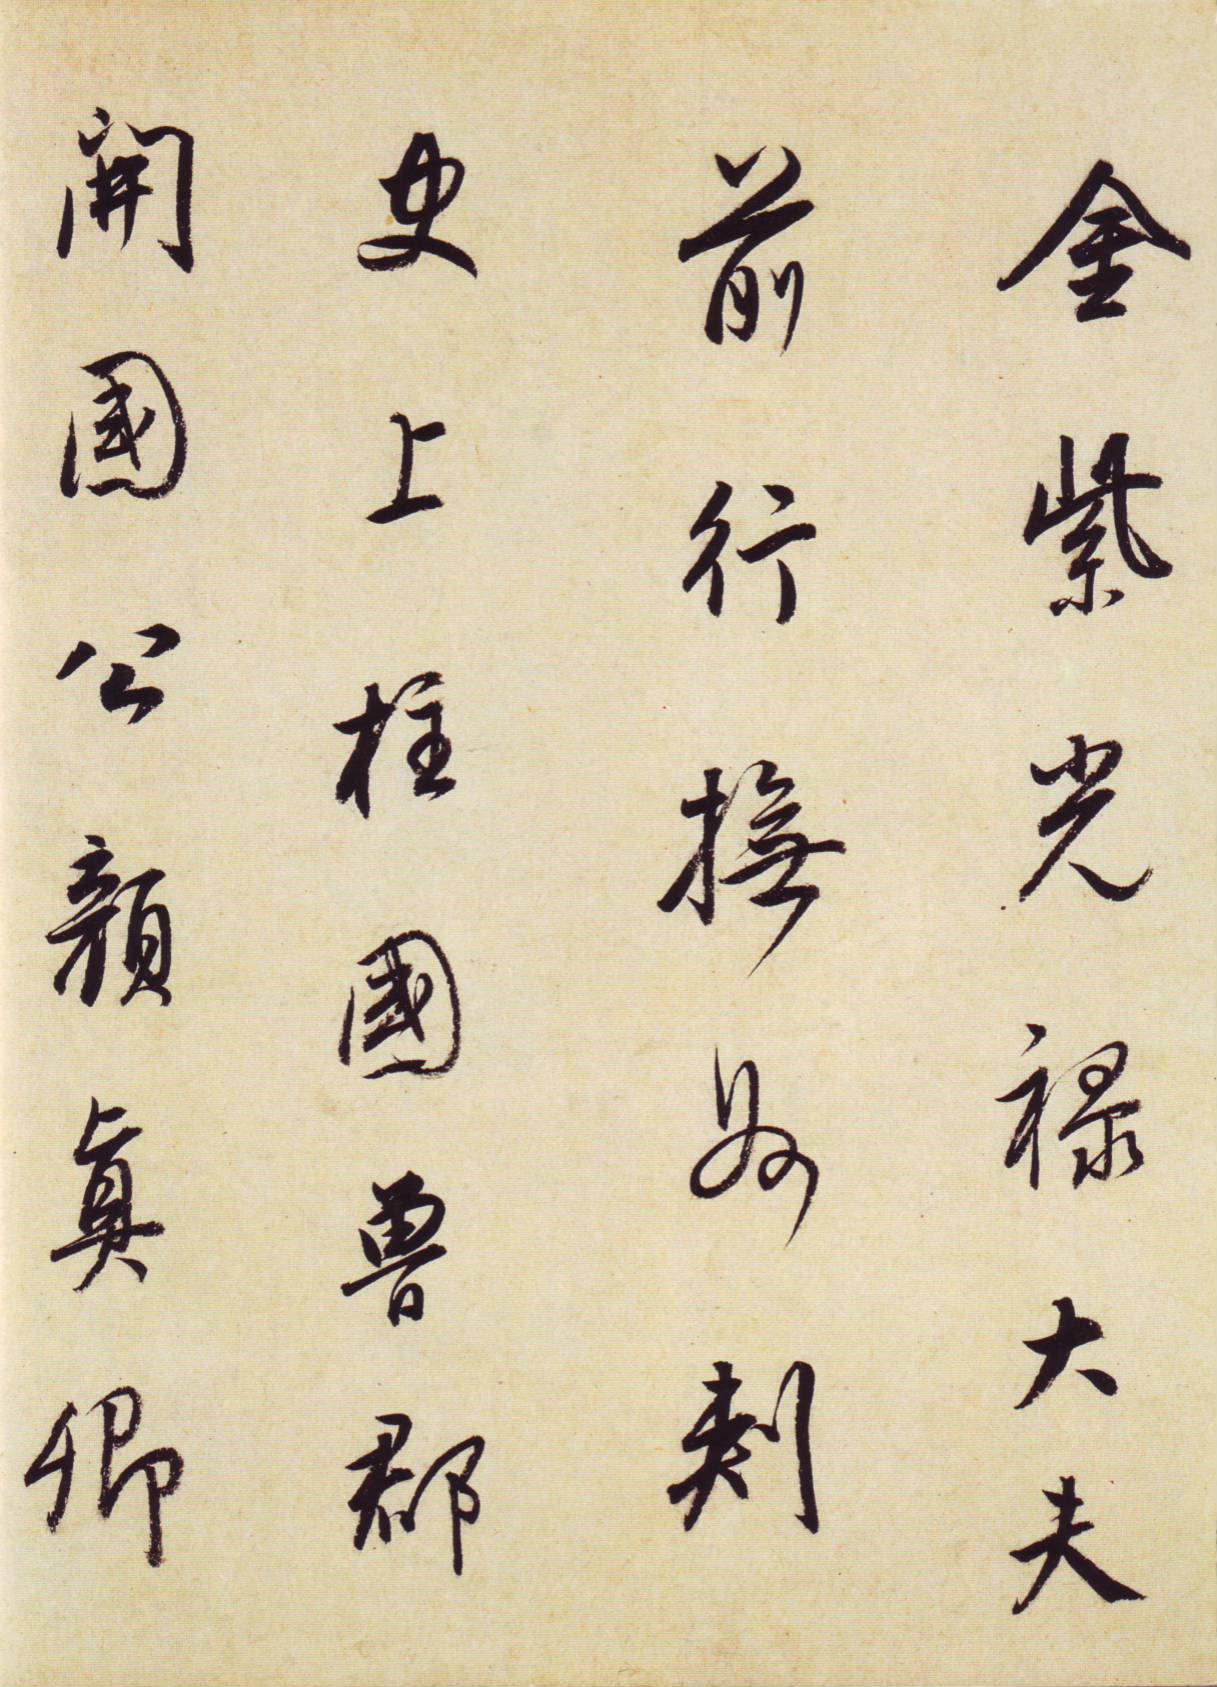 金紫光祿大夫
前行撫州刺
史上柱國魯郡
開國公顏眞卿